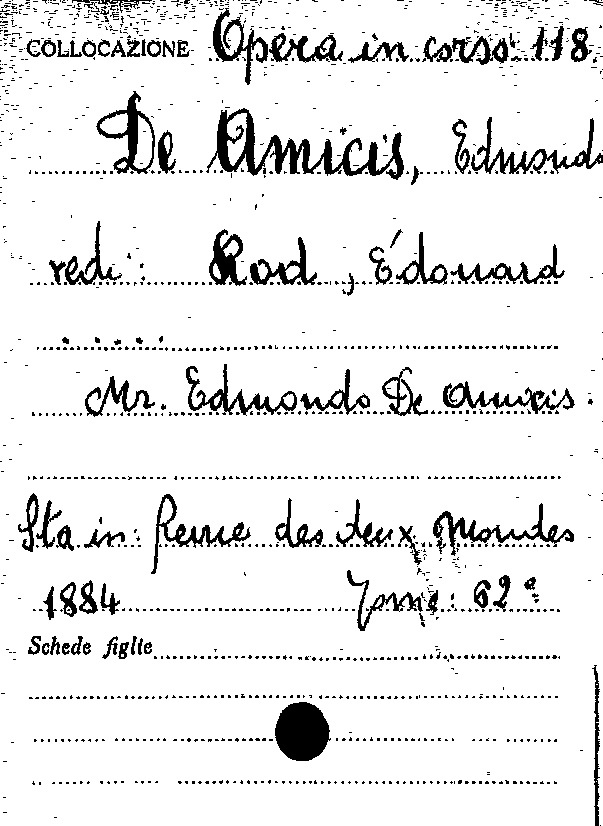 COLLOCAZIONE Opera in corso 118.
De Amicis, Edmondo
vedi: Rod, Édouard
.....
Mr. Edmondo De Amicis.
Sta in: Revue des deux Mondes
1884 Tome: 62e
Schede figlie